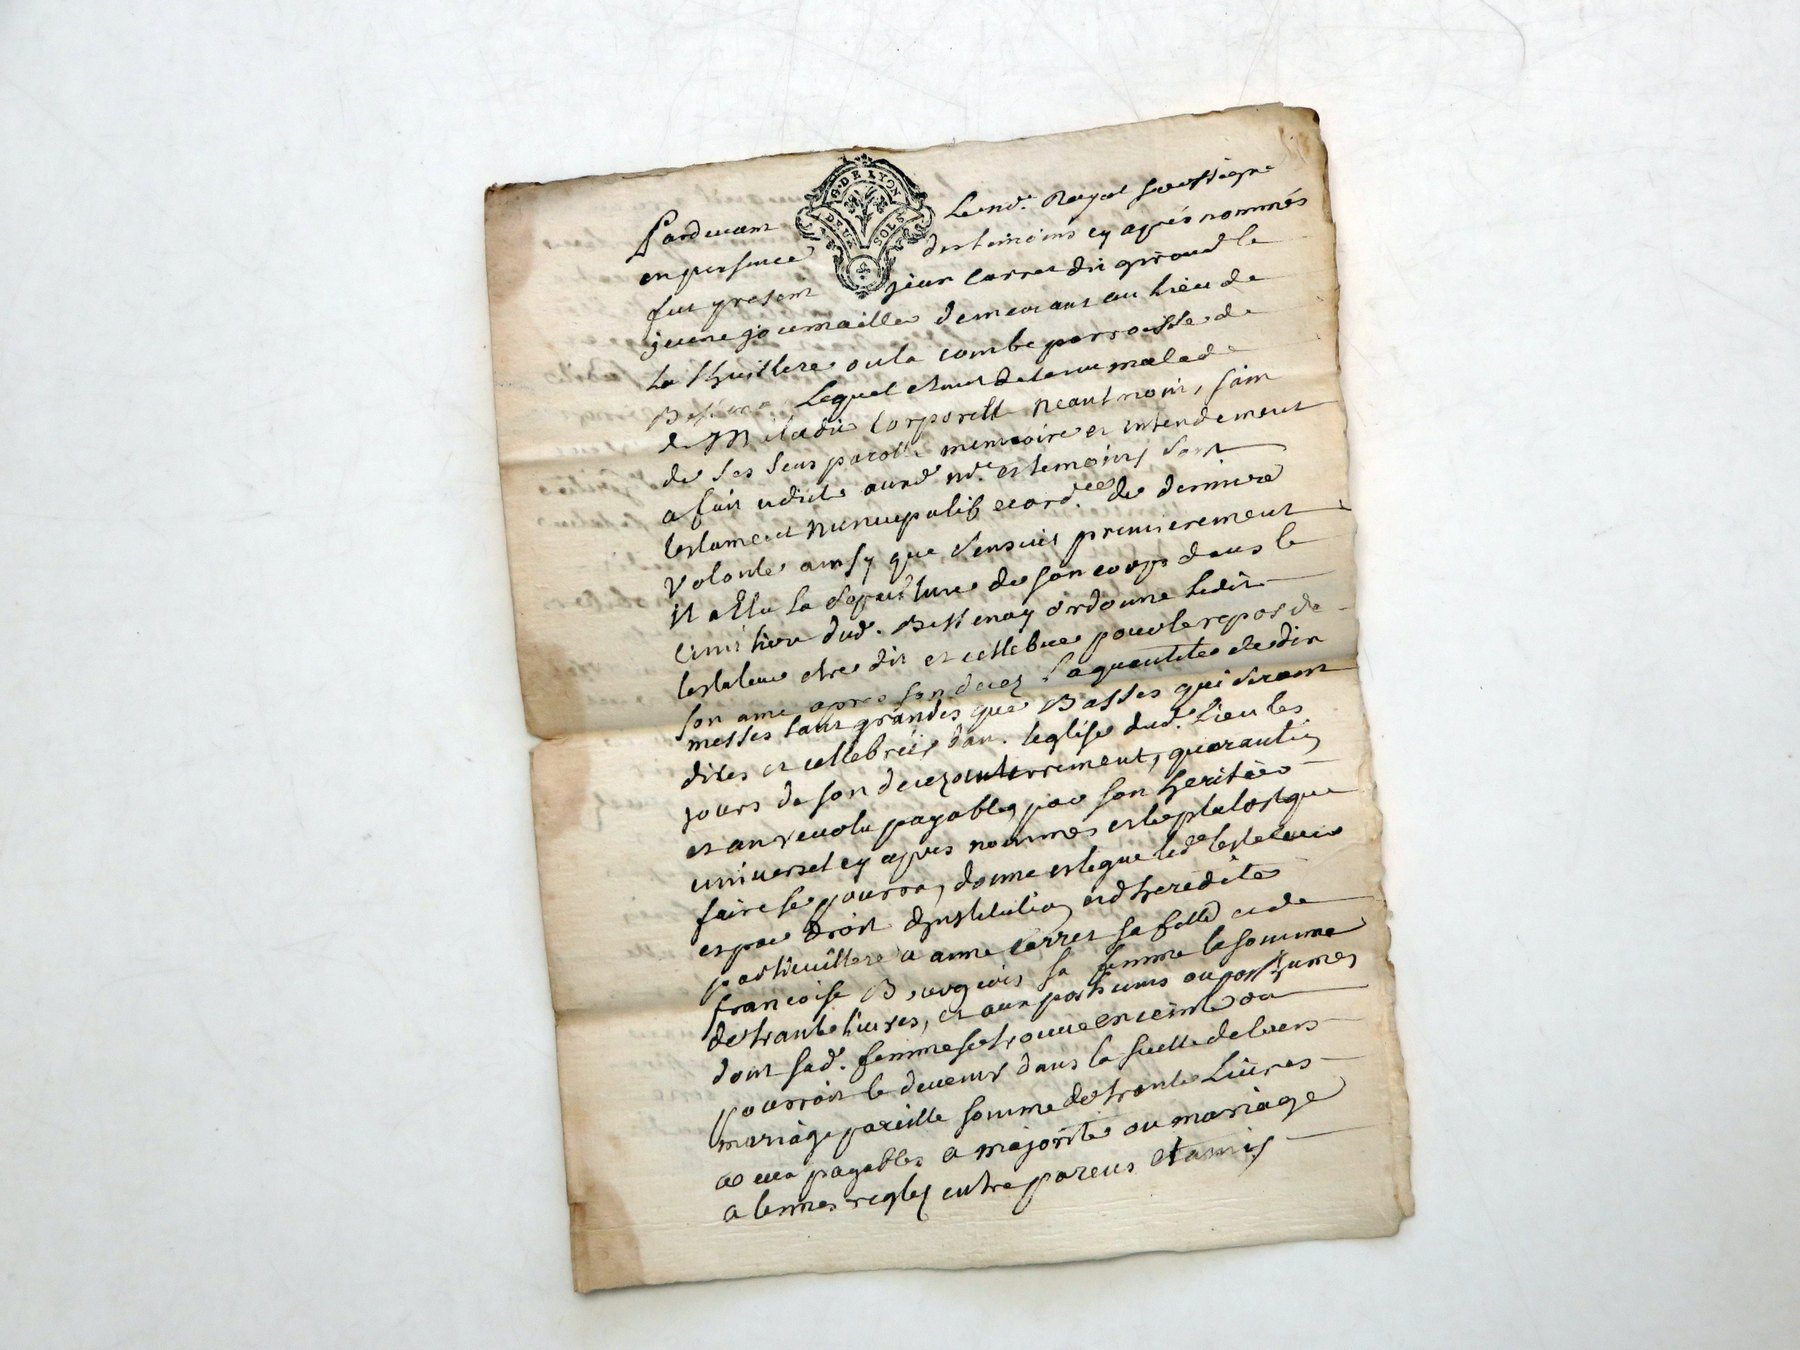 G. DE LYON
DEUX SOLS
Pardevant Le nore. Royal soussigné
en presence des temoins cy aprés nommés
fut present jean Carret dit giroud le
jeune journaillier demeurant au Lieu de
la thuillere ou la combe parroisse de
Lequel etant detenu malade
de Maladie Corporelle Neautmoin, sain
de ses sens parolle memoire et entendement
a fait et dicté aud nre. et temoins, son
testament Nuncupatif et ordce. de derniere
volonté ainsy que s'ensuit premierement
il a Elu la Sepulture de son corps dans le
Cimitiere dud. Bessenay ordonne Ledit
testateur etre dit et cellebré pour le repos de
son ame apres son decez la quantité de dix
messes tant grandes que Basses qui seront
dites et cellebrées dans l'eglise dud. Lieu les
jours de son decez enterrement, quarantin
et an revolu payables, par son heritier
universel cy apres nommés et le plutost que
faire se pourra, donne et legue led. testateur
et par droit d'institution et d'heredité
particulliere a anne Carret sa fille et de
francoise Bourgeois sa femme la somme
de trante livres, et aux posthumes
dont sad. femme se trouve enceinte ou
pourroit le devenir dans la suitte de leurs
mariage pareille somme de trante Livres
a eux payables a majorité ou mariage
a termes reglez entre parens et amis